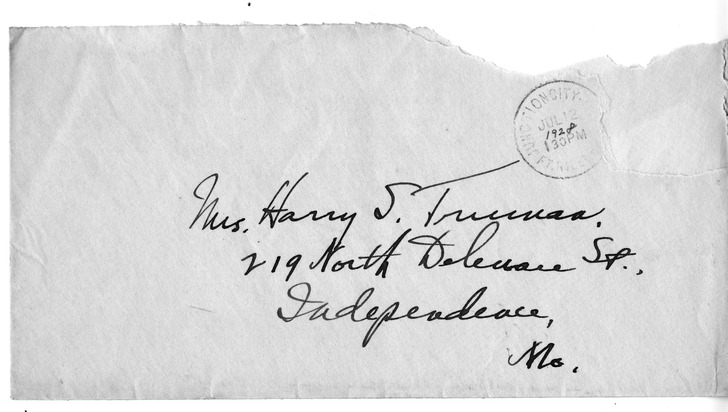 JUNCTION CITY.
JUL 12
1928
130PM
FT. RILEY
Mrs. Harry S. Truman.
219 North Delaware St.,
Independence,
Mo.